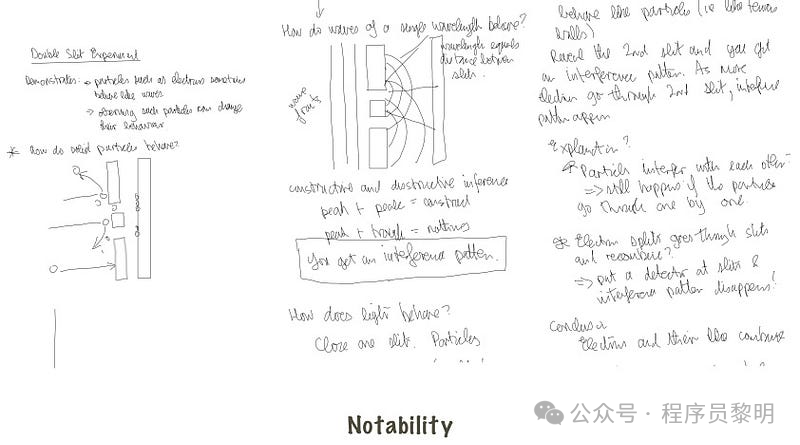 Double Slit Experiment
Demonstrates: → particles such as electrons sometimes
behave like waves
→ observing such particles can change
their behaviour
* How do solid particles behave?
How do waves of a single wavelength behave?
wavelength equals
distance between
slits.
wave
fronts
constructive and destructive inference
peak + peak = construct
peak + trough = nothing
You get an interference pattern.
How does light behave?
Close one slit. Particles
behave like particles (ie like tennis
balls)
Reveal the 2nd slit and you get
an interference pattern. As more
electron go through 2nd slit, interfere
pattern appears
Explanation?
* Particles interfer with each other?
⇒ still happens if the particles
go through one by one.
* Electron splits goes through slits
and recombine?
⇒ put a detector at slits &
interference pattern disappears!
Conclusion
Electrons and their like combine
Notability
公众号 · 程序员黎明